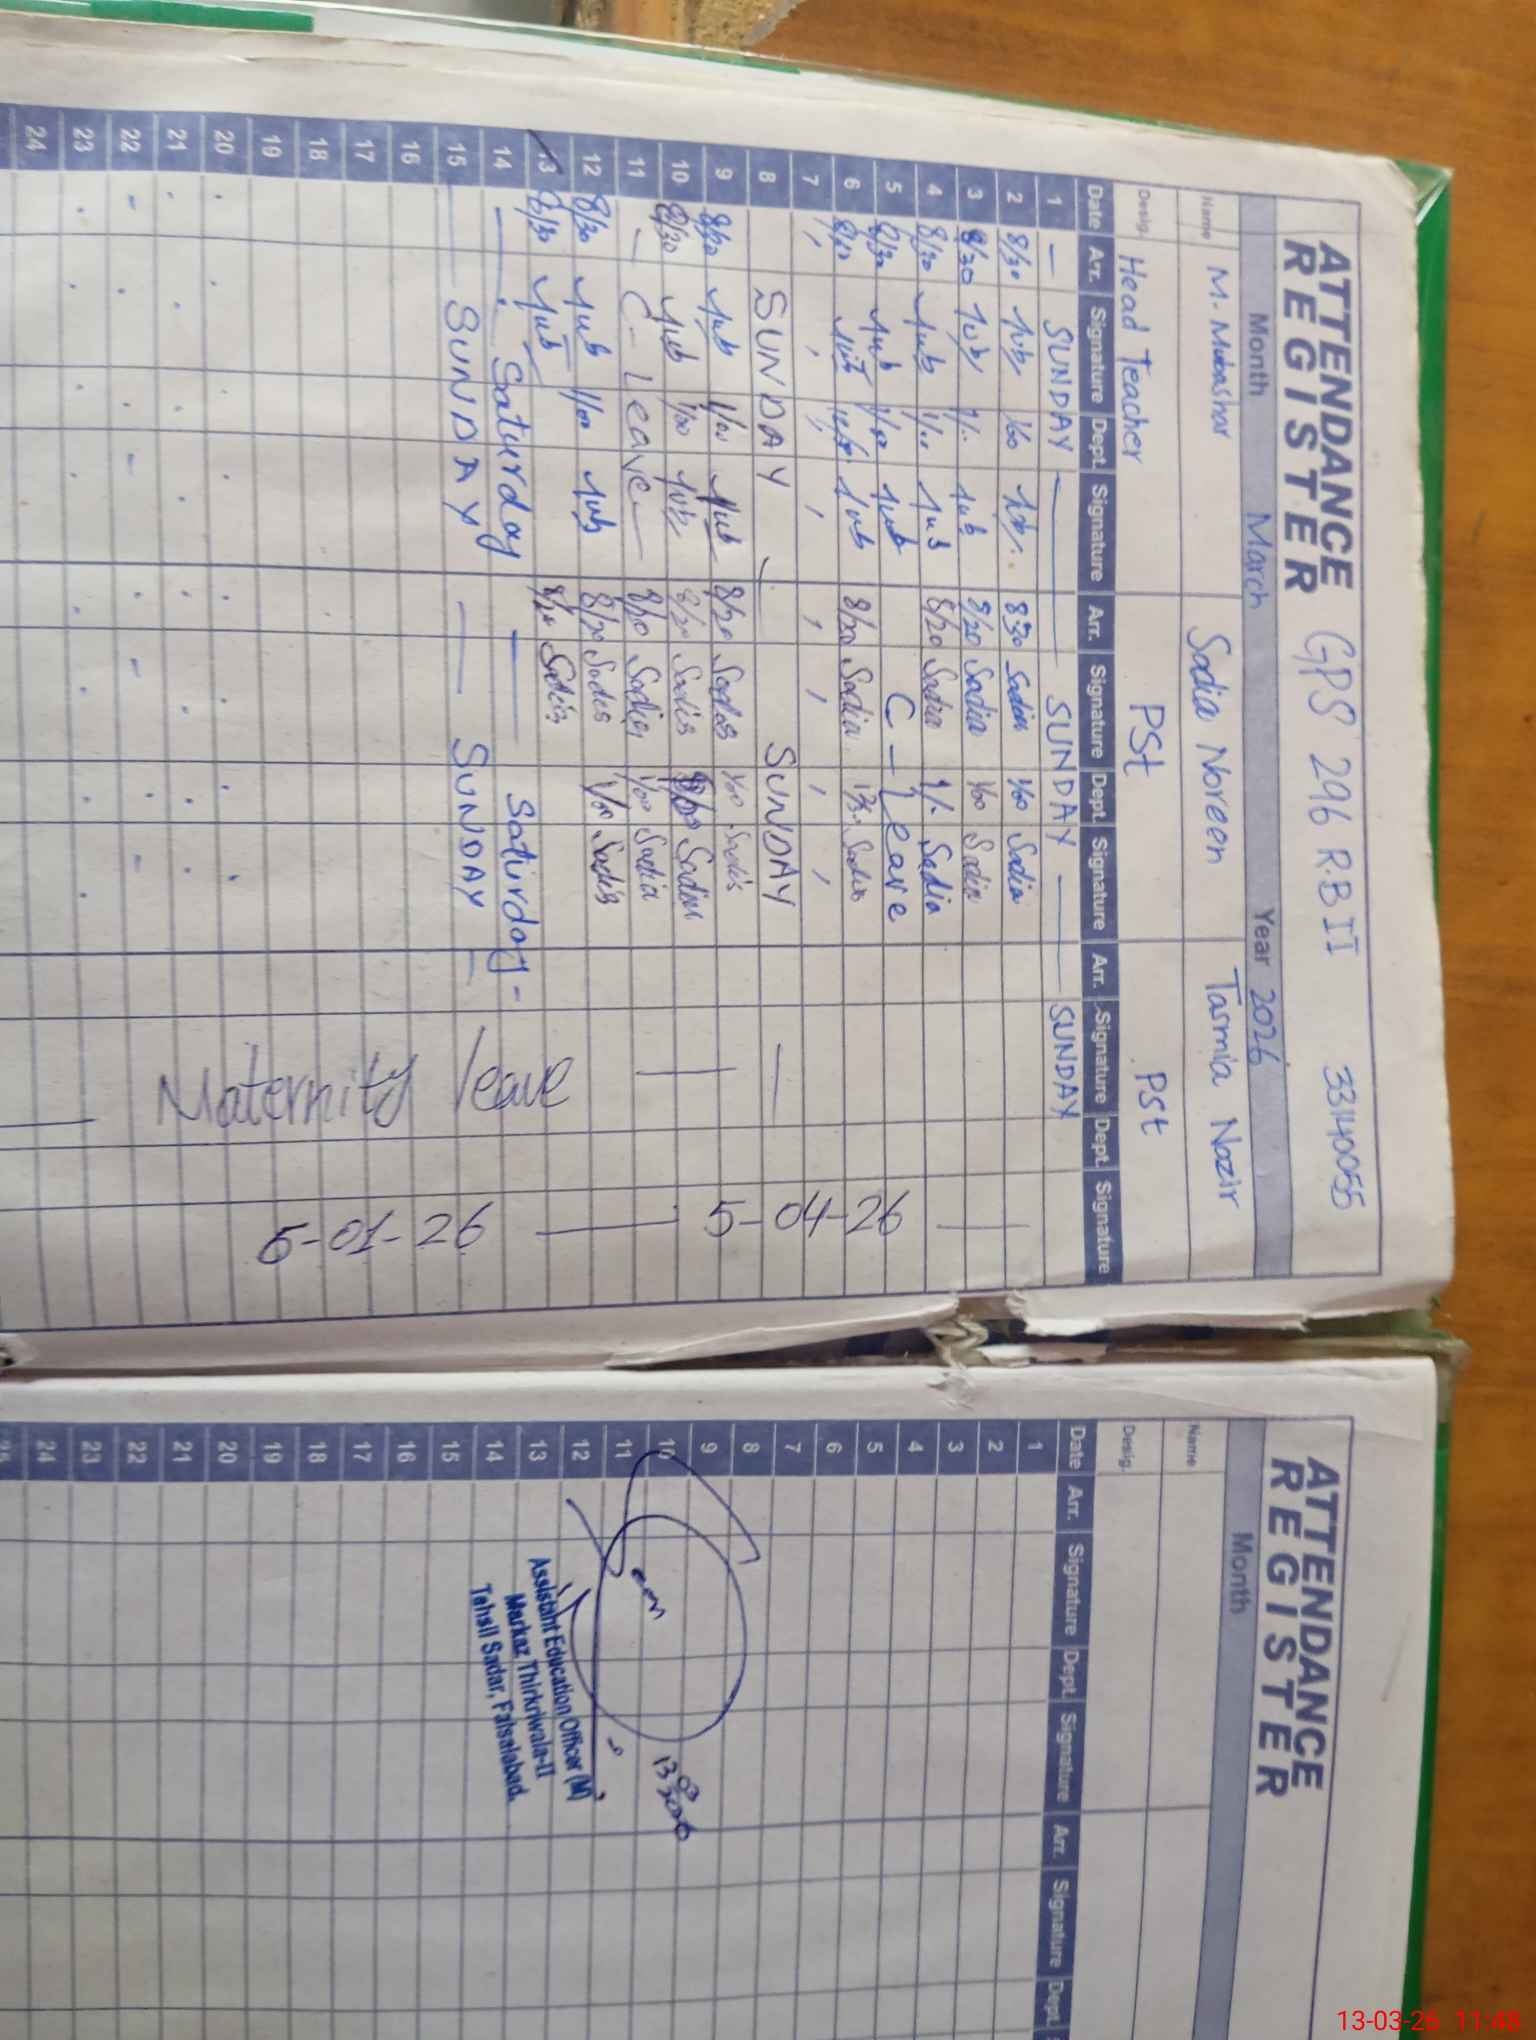 ATTENDANCE REGISTER GPS 296 R.B II 33140055
Month March Year 2026
Name M. Mubashar Sadia Noreen Tasmia Nazir
Desig. Head Teacher PSt PSt
Date Arr. Signature Dept. Signature Arr. Signature Dept. Signature Arr. Signature Dept. Signature
1 — SUNDAY — SUNDAY — SUNDAY
2 8/30 1/00 8:30 Sadia 1/00 Sadia
3 8/30 1/. 8/20 Sadia 1/00 Sadia
4 8/30 1/.. 8/20 Sadia 1/. Sadia
5 8/30 1/00 C - Leave
6 8/30 8/30 Sadia Sadia
7
8 SUNDAY SUNDAY —
9 8/30 1/00 8/20 Sadia 1/00 Sadia
10 8/30 1/00 8/20 Sadia Sadia
11 — C - Leave — 8/20 Sadia 1/00 Sadia
12 8/30 1/00 8/20 Sadia 1/00 Sadia
13 8/30 8/20 Sadia
14 — Saturday — Saturday -
15 — SUNDAY — SUNDAY —
16
17
18
19
20
21
22
23
24
Maternity leave
5-01-26 — 5-04-26
ATTENDANCE REGISTER
Month
Name
Desig.
Date Arr. Signature Dept. Signature Arr. Signature Dept.
1
2
3
4
5
6
7
8
9
10
11
12
13
14
15
16
17
18
19
20
21
22
23
24
25
Assistant Education Officer (M)
Markaz Thirkriwala-II
Tehsil Sadar, Faisalabad.
13-03-26 11:48